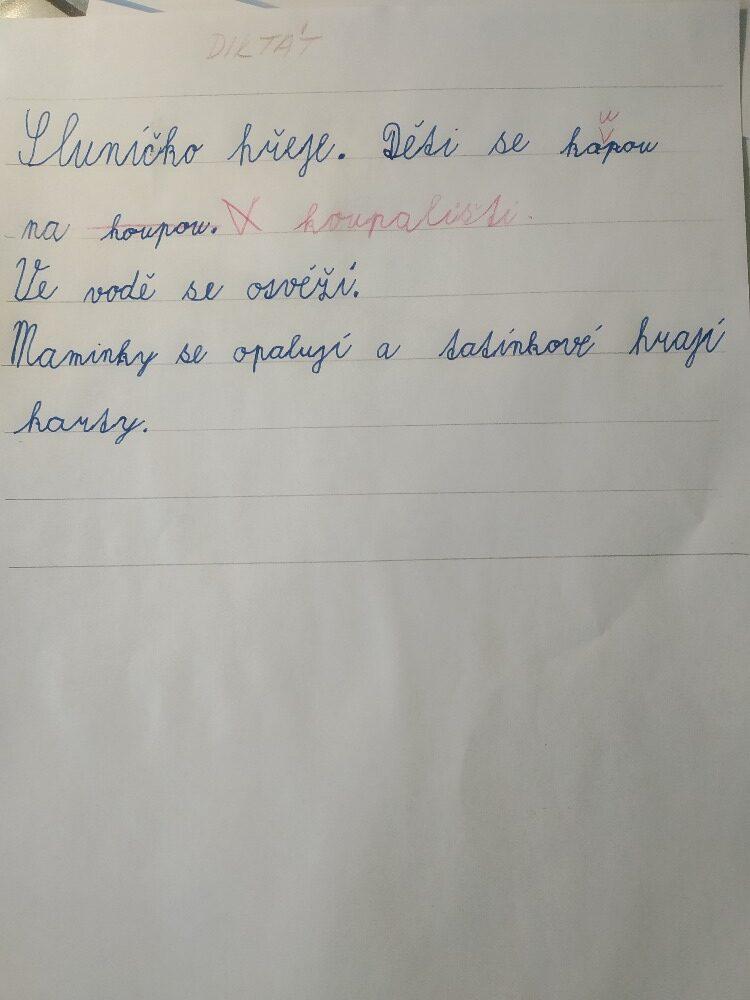 DIKTÁT
Sluníčko hřeje. Děti se kopou
u
na houpou. X koupališti.
Ve vodě se osvěží.
Maminky se opalují a tatínkové hrají
karty.